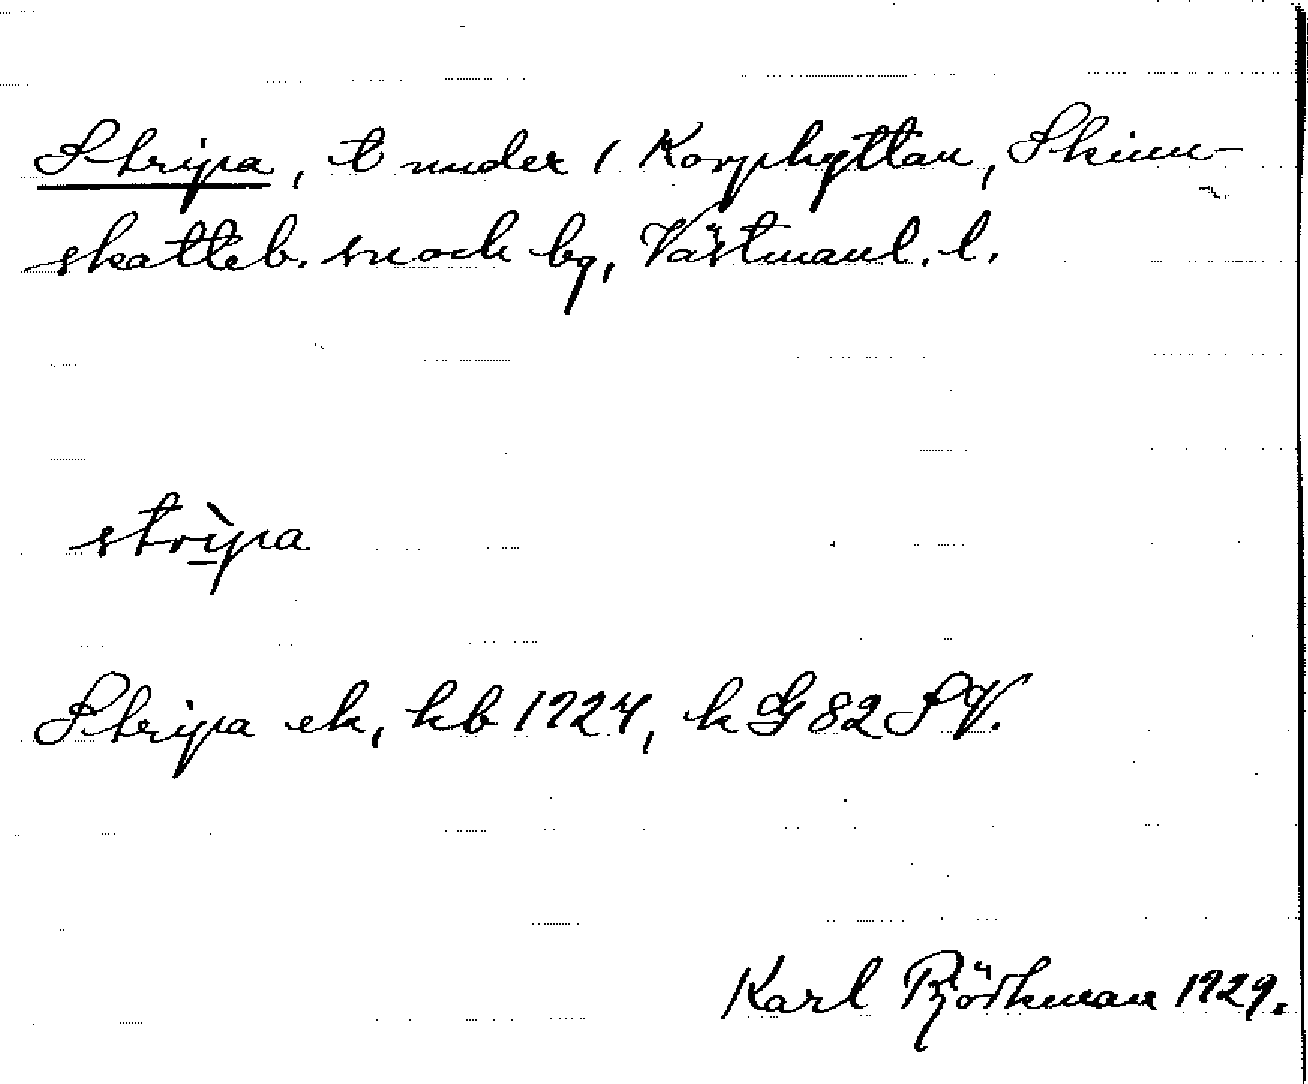 Stripa, t under 1 Korphyttan, Skinn-
skatteb. sn och bg, Västmanl. l.
strìpa
Stripa ek, kb 1924, k G 82 SV.
Karl Björkman 1929.